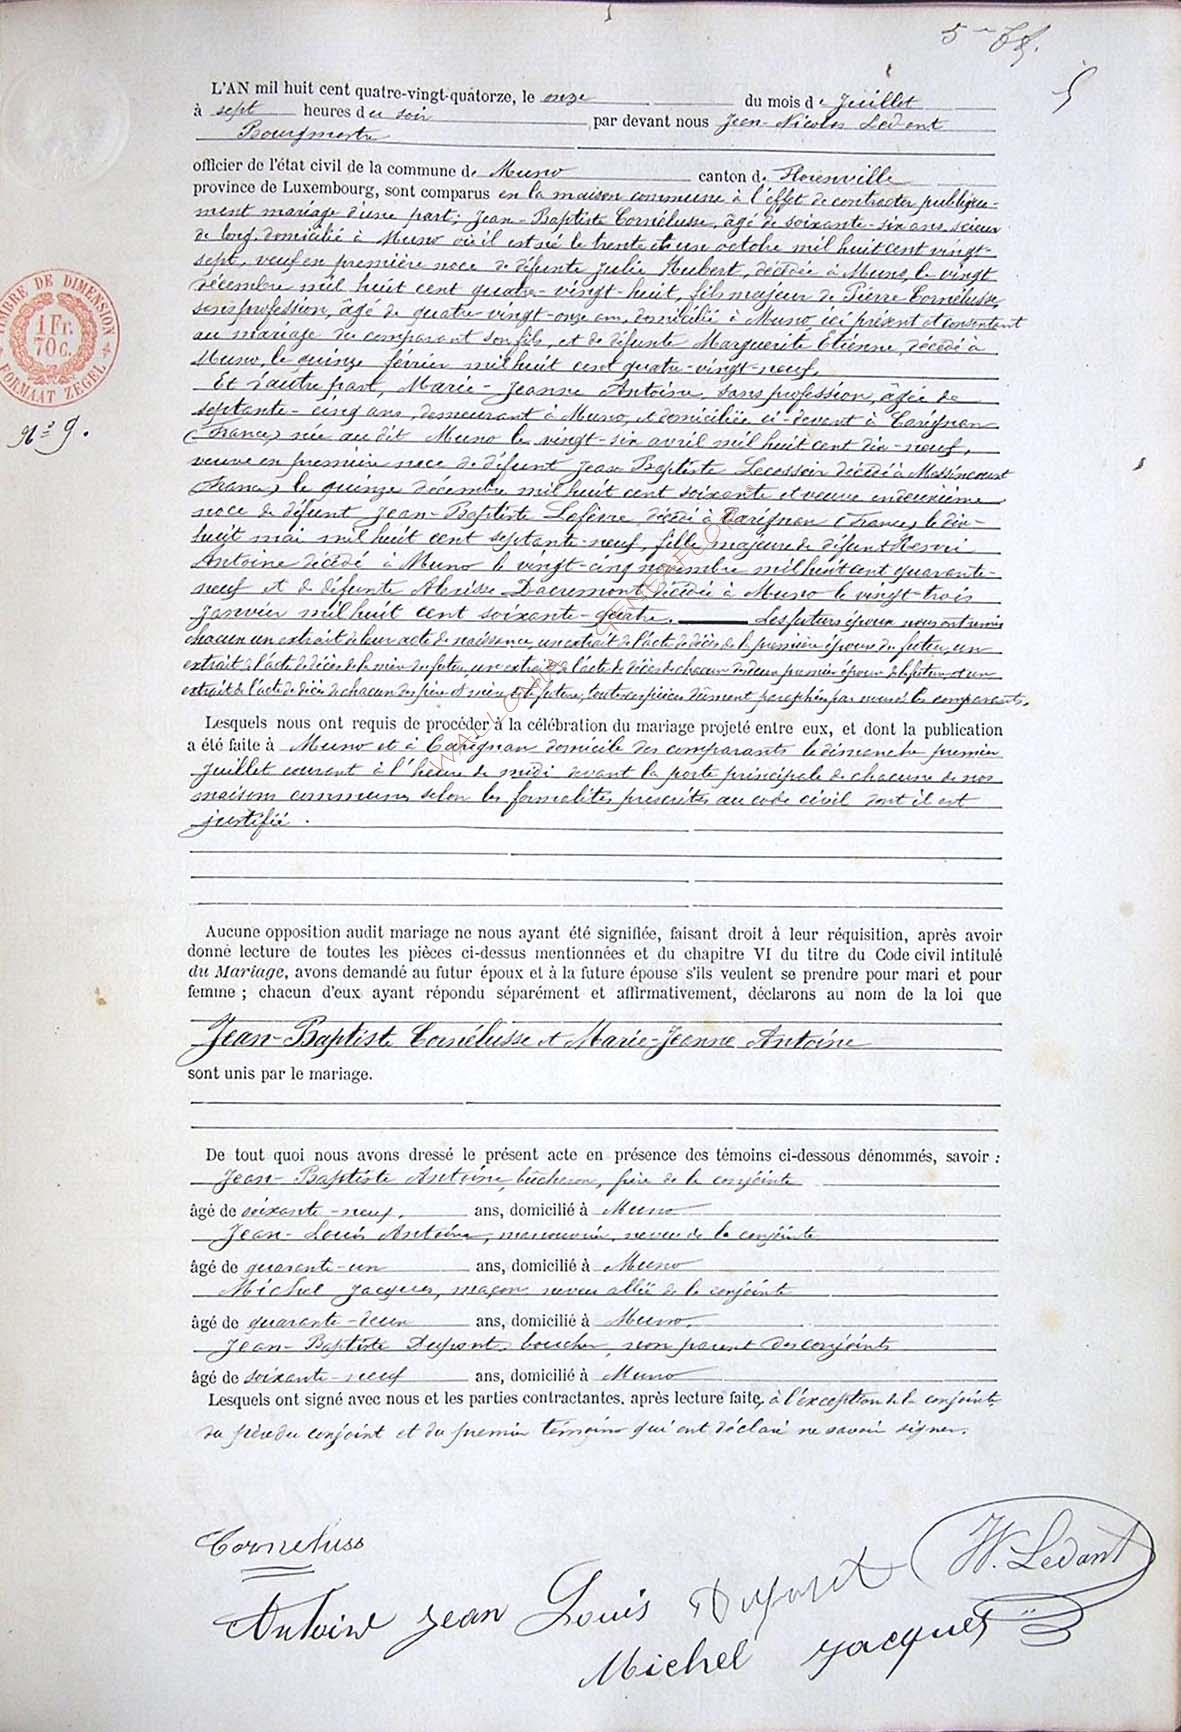 5
L'AN mil huit cent quatre-vingt-quatorze, le onze du mois de Juillet
à sept heures du soir par devant nous Jean-Nicolas Ledant
Bourgmestre
officier de l'état civil de la commune de Muno canton de Florenville
province de Luxembourg, sont comparus en la maison commune à l'effet de contracter publique-
ment mariage d'une part; Jean-Baptiste Cornélusse, âgé de soixante-six ans, scieur
de long, domicilié à Muno où il est né le trente et un octobre mil huit cent vingt-
sept, veuf en première noce de défunte Julie Hubert, décédée à Muno, le vingt
décembre mil huit cent quatre-vingt-huit, fils majeur de Pierre Cornélusse,
sans profession, âgé de quatre-vingt-onze ans, domicilié à Muno ici présent et consentant
au mariage du comparant son fils, et de défunte Marguerite Etienne, décédé à
Muno, le quinze février mil huit cent quatre-vingt-neuf.
Et d'autre part, Marie-Jeanne Antoine, sans profession, âgée de
septante-cinq ans, demeurant à Muno, et domiciliée ci-devant à Carignan
(France) née au dit Muno le vingt-six avril mil huit cent dix-neuf,
veuve en première noce de défunt Jean-Baptiste décédé à Messincourt
(France) le quinze décembre mil huit cent soixante et veuve en deuxième
noce de défunt Jean-Baptiste Lefèvre, décédé à Carignan (France) le dix-
huit mai mil huit cent septante-neuf, fille majeure de défunt Henri
Antoine décédé à Muno le vingt-cinq novembre mil huit cent quarante-
neuf et de défunte décédée à Muno le vingt-trois
Janvier mil huit cent soixante-quatre. Les futurs époux nous ont remis
chacun un extrait de leur acte de naissance, un extrait de l'acte de décès de la première épouse du futur, un
extrait de l'acte de décès de la mère du futur, un extrait de l'acte de décès de chacun des deux premiers époux de la future et un
extrait de l'acte de décès de chacun des père et mère de la future, toutes ces pièces dûment paraphées par nous et les comparants.
Lesquels nous ont requis de procéder à la célébration du mariage projeté entre eux, et dont la publication
a été faite à Muno et à Carignan domicile des comparants le dimanche premier
Juillet courant à l'heure de midi devant la porte principale de chacune de nos
maisons communes selon les formalités prescrites au code civil dont il est
justifié.
Aucune opposition audit mariage ne nous ayant été signifiée, faisant droit à leur réquisition, après avoir
donné lecture de toutes les pièces ci-dessus mentionnées et du chapitre VI du titre du Code civil intitulé
du Mariage, avons demandé au futur époux et à la future épouse s'ils veulent se prendre pour mari et pour
femme ; chacun d'eux ayant répondu séparément et affirmativement, déclarons au nom de la loi que
Jean-Baptiste Cornélusse et Marie-Jeanne Antoine
sont unis par le mariage.
De tout quoi nous avons dressé le présent acte en présence des témoins ci-dessous dénommés, savoir :
Jean-Baptiste Antoine, bûcheron, frère de la conjointe
âgé de soixante-neuf ans, domicilié à Muno
Jean-Louis Antoine, manouvrier, neveu de la conjointe
âgé de quarante-un ans, domicilié à Muno
Michel Jacques, maçon, neveu allié de la conjointe
âgé de quarante-deux ans, domicilié à Muno.
Jean-Baptiste Dupont, boucher, non parent des conjoints
âgé de soixante-neuf ans, domicilié à Muno
Lesquels ont signé avec nous et les parties contractantes, après lecture faite, à l'exception de la conjointe
du père du conjoint et du premier témoins qui ont déclaré ne savoir signer.
TIMBRE DE DIMENSION
1 Fr.
70 c.
FORMAAT ZEGEL
N° 9.
WALLONIA GENEAFLORE
Cornéluss
Antoine Jean Louis Dupont N. Ledant
Michel Jacques